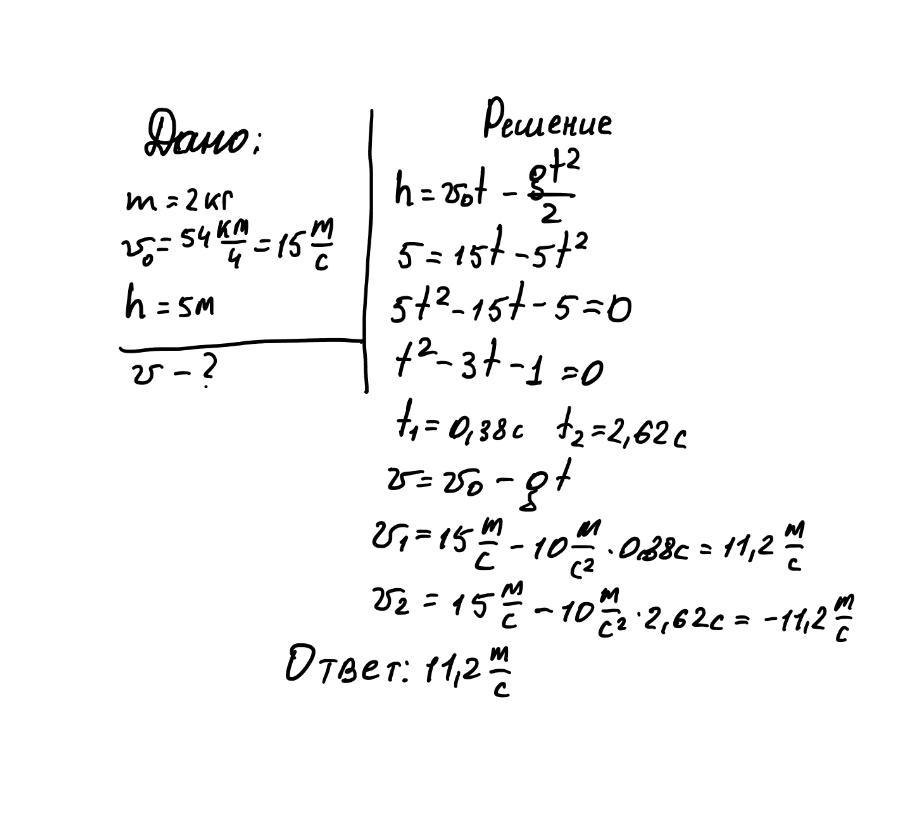 Дано:
m = 2 кг
v₀ = 54 км/ч = 15 м/с
h = 5м
v - ?
Решение
h = v₀t - gt²/2
5 = 15t - 5t²
5t² - 15t - 5 = 0
t² - 3t - 1 = 0
t₁ = 0,38с t₂ = 2,62с
v = v₀ - gt
v₁ = 15 м/с - 10 м/с² · 0,38с = 11,2 м/с
v₂ = 15 м/с - 10 м/с² · 2,62с = -11,2 м/с
Ответ: 11,2 м/с